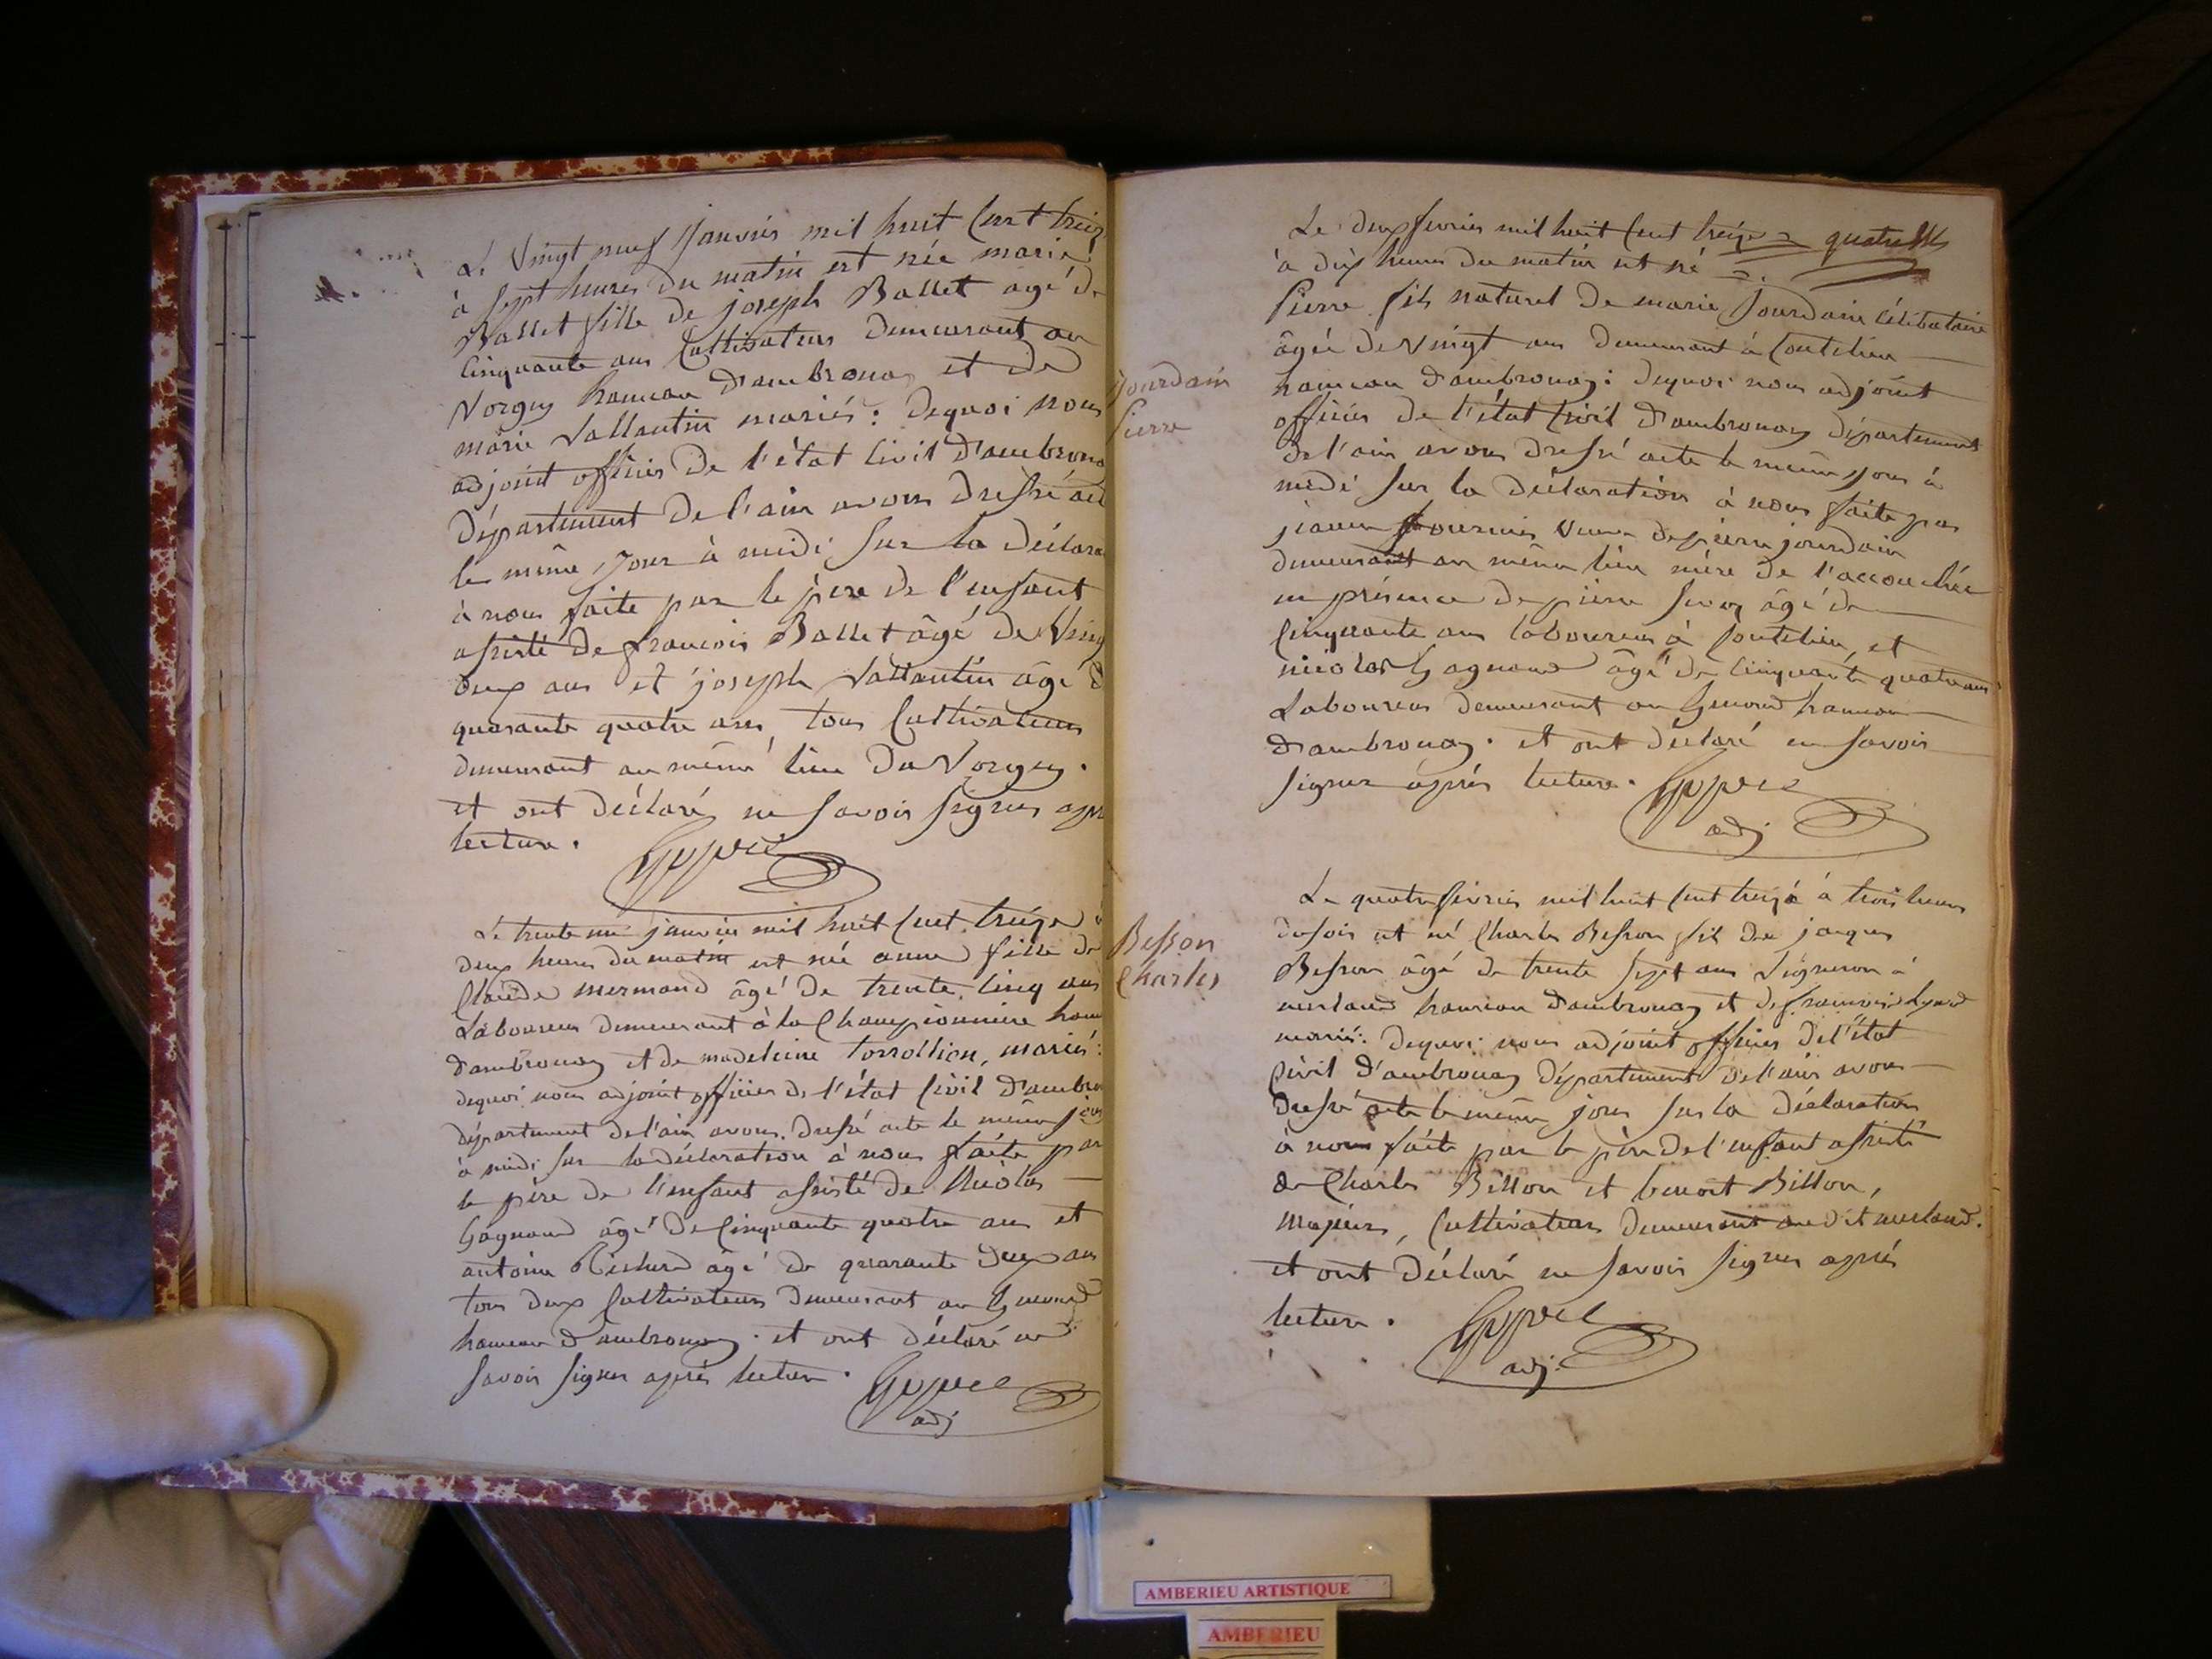 Le vingt neuf janvier mil huit cent treiz
à sept heures du matin est née marie
Ballet fille de joseph Ballet agé de
cinquante ans Cultivateur demeurant au
Vorgey hameau d'ambronay et de
marie Vallantin mariés : dequoi nous
adjoint officier de l'état civil d'ambrona
département de l'ain avons dressé act
le même jour à midi sur la déclara
à nous faite par le père de l'enfant
assisté de francois Ballet âgé de Ving
deux ans et joseph Vallantin âgé d
quarante quatre ans, tous Cultivateurs
demeurant au même lieu du Vorgey.
et ont déclaré ne savoir signer apr
lecture.
Le trente un janvier mil huit cent treize à
deux heures du matin est née anne fille de
Claude mermand âgé de trente cinq ans
Laboureur demeurant à la Championnière ham
d'ambronay et de madeleine torrollion, mariés :
dequoi nous adjoint officier de l'état civil d'ambro
département de l'ain avons dressé acte le même jour
à midi sur la déclaration à nous faite par
le père de l'enfant assisté de Nicolas
Gagnand âgé de cinquante quatre ans et
antoine âgé de quarante deux ans
tous deux Cultivateurs demeurant au Genoud
hameau d'ambronay. et ont déclaré ne
savoir signer après lecture.
adj
Le deux fevrier mil huit cent treize
à dix heures du matin est né
Pierre fils naturel de marie Jourdain célibataire
âgée de vingt ans demeurant à Coutelieu
Jourdain
Pierre
hameau d'ambronay : dequoi nous adjoint
officier de l'état Civil d'ambronay département
de l'ain avons dressé acte le même jour à
midi sur la déclaration à nous faite par
jeanne fournier veuve de pierre jourdain
demeurant au même lieu mère de l'accouchée
en présence de pierre âgé de
Cinquante ans laboureur à Coutelieu, et
nicolas Gagnand âgé de Cinquante quatre ans
Laboureur demeurant au Genoud hameau
d'ambronay. et ont déclaré ne savoir
signer après lecture.
adj
Besson
Charles
Le quatre février mil huit cent treize à trois heures
du soir est né Charles Besson fils de jacques
Besson âgé de trente sept ans vigneron à
merland hameau d'ambronay et de francoise
mariés : dequoi nous adjoint officier de l'état
Civil d'ambronay département de l'ain avons
dressé acte le même jour sur la déclaration
à nous faite par le père de l'enfant assisté
de Charles Billon et benoit Billon,
majeurs, Cultivateurs demeurant au dit merland.
et ont déclaré ne savoir signer après
lecture.
adj.
AMBERIEU ARTISTIQUE
AMBERIEU